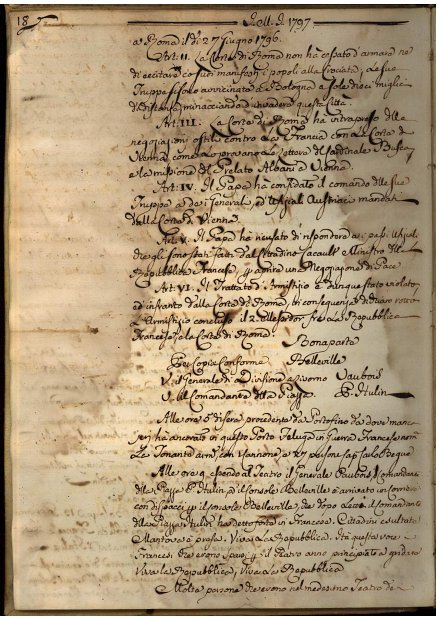 18
1797
a Roma il dì 27 Giugno 1796.
Art. II. La Corte di Roma non ha cessato d'armare, ne
di eccitare co' suoi manifesti i popoli alla Crociata; Le sue
Truppe si sono avvicinate a Bologna a sole dieci miglia
di distanza minacciando d'invadere questa Città.
Art. III. La Corte di Roma ha intrapreso delle
negoziazioni ostili contro la Francia con la Corte di
Vienna, come lo provano la lettera del Cardinale Busca
e la missione del Prelato Albani a Vienna.
Art. IV. Il Papa ha confidato il comando delle sue
Truppe a dei Generali, ed Uffiziali Austriaci mandati
dalla Corte di Vienna.
Art. V. Il Papa ha ricusato di rispondere ai passi
che gli sono stati fatti dal Cittadino Cacault Ministro della
Repubblica Francese, per aprire una Negoziazione di Pace
Art. VI. Il Trattato d'Armistizio è dunque stato violato
ed infranto dalla Corte di Roma, in conseguenza dichiaro rotto
l'Armistizio concluso il 2 Messidor fra la Repubblica
Francese, e la Corte di Roma
Bonaparte
Per Copia Conforme Belleville
V. il Generale di Divisione a Livorno Vaubois
V. il Comandante della Piazza B. Hulin
Alle ore 6 di sera procedente da Portofino da dove manca
ha ancorato in questo Porto Feluga in Guerra Francese
La Tonante arm. con 1 Cannone, e 27 persone Cap.
Alle ore 9 essendo al Teatro il Generale Vaubois, Comandante
della Piazza B. Hulin, ed il Console Belleville è arrivato un Corriere
con dispacci per il Console Belleville, che dopo letti, il Comandante
della Piazza Hulin ha detto forte in Francese, Cittadini esultate
Mantova è presa. Viva la Repubblica. A questa voce i
Francesi che erono per il Teatro anno principiato a gridare
Viva la Repubblica, Viva la Repubblica
Molte persone che erono nel medesimo Teatro